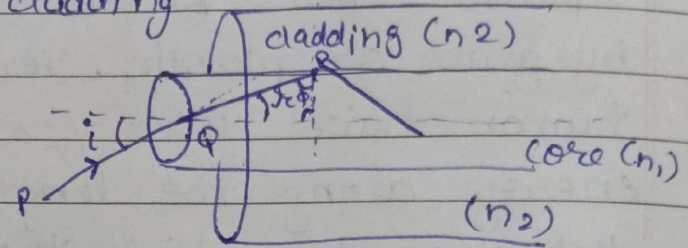 cladding
cladding (n2)
R
i
Q
r
φ
core (n1)
P
(n2)